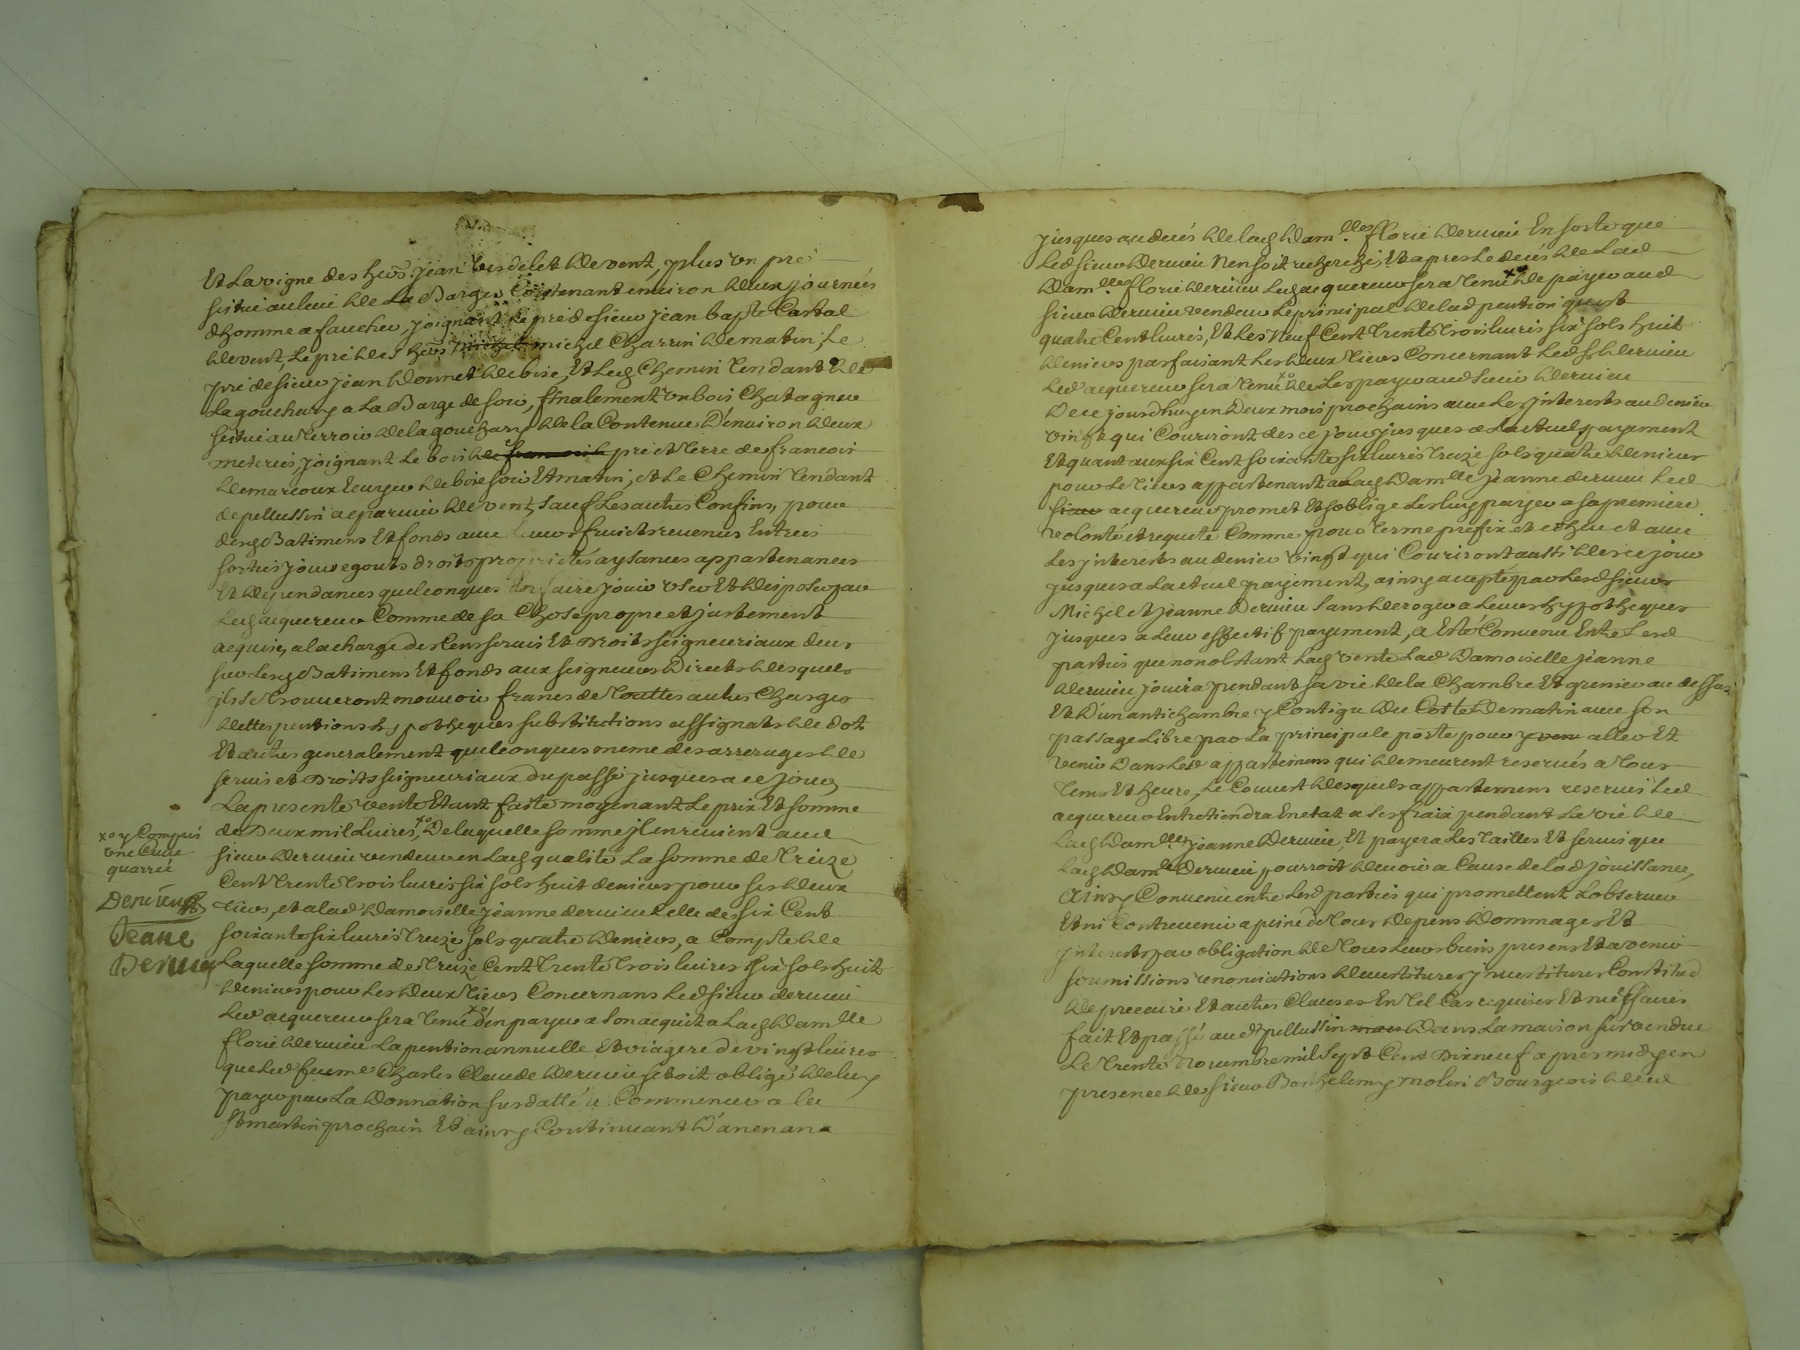 Et La vigne des hers Jean bisdilet de vent, plus un pré
scitué au lieu de La Barge Contenant environ deux journées
dhomme a faucher, joignant Le pré de sieur Jean bapte Castal
de vent, Le pré des hers michel Charrin de matin, Le
pré de sieur Jean donnet de bise, Et led Chemin Tendant de
Lagouchary a La Barge de soir, finalement un bois Chatagner
scitué au Terroir de lagouchary de la Contenue D'environ deux
meterées joignant Le bois de pré et Terre de francois
demarcoux Leurger de bise soir Et matin, et Le Chemin Tendant
de pellussin a de vent, sauf Les autres Confins, pour
desd Batimens Et fonds avec Leurs fruits revenus Entrées
sorties jour egouts droits proprietés aysances appartenances
Et dependances quelconques En faire jouir user Et disposer par
Led acquereur Comme de sa Chose propre et justement
acquise, a la charge des Cens servis Et Droits seigneuriaux deus
sur Lesd Batimens Et fonds aux seigneurs Directs desquels
ils se Trouveront mouvoir francs de Touttes autres Charges
dettes pentions hypotheques substitutions assignats de dot
Et autres generalement quelconques meme des arrerages de
servis et Droits seigneuriaux du passé jusques a ce jour,
La presente vente Etant faite moyenant Le prix Et somme
de Deux mil Livres, xo De laquelle somme jl en revient aud
xo y Compris
une Cuve
quarrée
sieur dervieu vendeur en Lad qualité La somme de Treize
Cent Trente Trois livres six sols huit deniers pour ses deux
Dervieu
Tiers, et a lad Damoiselle jeanne dervieu Celle de six Cent
Jeane
soixante six livres Treize sols quatre deniers, a Compte de
Dervieu
Laquelle somme de Treize Cent Trente Trois livres six sols huit
deniers pour Les deux Tiers Concernans Led sieur dervieu
Led acquereur sera Tenu xo d'en payer a son acquit a Lad Damlle
florie dervieu La pention annuelle Et viagere de vingt livres
que Led feu me Charles Claude dervieu setoit obligé de luy
payer par La Donnation susdattée a Commencer a la
St martin prochain Et ainsy Continuant D'an en an
jusques au decés de lad Damlle florie dervieu En sorte que
Led sieur dervieu n'en soit recherché, Et apres Le decés de Lad
Damlle florie dervieu Led acquereur sera Tenu xo de payer aud
sieur dervieu vendeur Le principal de lad pention quest
quatre Cent livres, Et Les Neuf Cent Trente Trois livres six sols huit
deniers parfaisant Les deux Tiers Concernant Led Sr dervieu
Led acquereur sera Tenu xo de Les payer aud sieur dervieu
De ce jourdhuy en Deux mois prochains avec Les jnterests au denier
vingt qui Couriront des ce jour jusques a Lactuel payement
Et quant aux six Cent soixante six livres Treize sols quatre deniers
pour Le Tiers appartenant a Lad Damlle jeanne dervieu Led
sieur acquereur promet Et soblige Les luy payer a sa premiere
volonté et requete Comme pour Terme prefix et echeu et avec
Les jnterests au denier vingt qui Couriront aussi des ce jour
jusques a Lactuel payement, ainsy accepté par Lesd sieurs
Michel et Jeanne Dervieu sans deroger a Leurs hypotheques
jusques a Leur effectif payement, a Eté Convenu Entre Lesd
parties que nonobstant Lad vente Lad Damoiselle jeanne
dervieu jouira pendant sa vie de la Chambre Et grenier au dessus
Et D'un antichambre y Contigu Du Cotté De matin avec son
passage Libre par La principale porte pour y aller Et
venir Dans Lesd appartemens qui demeurent reservés a Tous
Tems Et heure, Le Couvert desquels appartemens reservés Led
acquereur Entretiendra En etat a ses fraix pendant La vie de
Lad Damlle jeanne Dervieu, Et payera Les Tailles Et servis que
Lad Damlle Dervieu pourroit devoir a Cause de lad jouissance,
Ainsy Convenu entre Lesd parties qui promettent Lobserver
Et ni Contrevenir a peine de Tous depens dommages Et
jnterets par obligation de Tous Leurs biens presens Et a venir
soumissions renonciations devestitures jnvestitures Constitud
de precaire Et autres Clauses En Tel Cas requises Et necessaires
fait Et passé aud pellussin Dans La maison sus vendue
Le Trente Novembre mil sept Cent Dixneuf apres midy en
presence de sieur Barthelemy molin Bourgeois dud